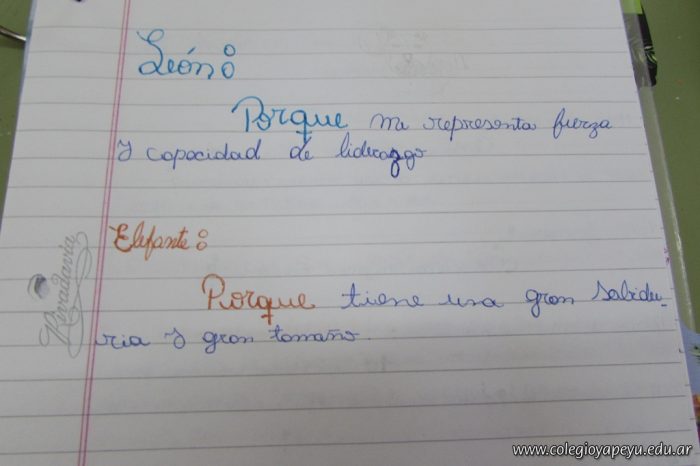 León:
Porque me representa fuerza
y capacidad de liderazgo
Elefante:
Porque tiene una gran sabidu-
ria y gran tamaño.
Rivadavia
www.colegioyapeyu.edu.ar